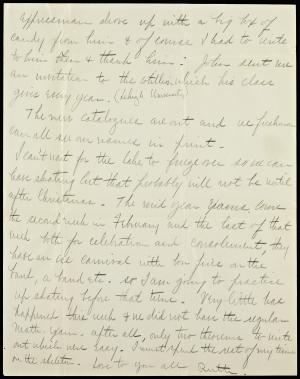 expressman drove up with a big box of
candy from him & of course I had to write
to him then & thank him. John sent me
an invitation to the which his class
gives every year. (Lehigh University)
The new catalogues are out and we freshmen
can all see our names in print.
I can't wait for the lake to freeze over so we can
have skating but that probably will not be until
after Christmas. The mid year exams come
the second week in February and the last of that
week both for celebration and consolement, they
have an ice carnival with bon fires on the
bank, a band etc. so I am going to practice
up skating before that time. Very little has
happened this week & we did not have the regular
Math. Exam. after all, only two theorems to write
out which were easy. I must spend the rest of my time
on the Love to you all Ruth